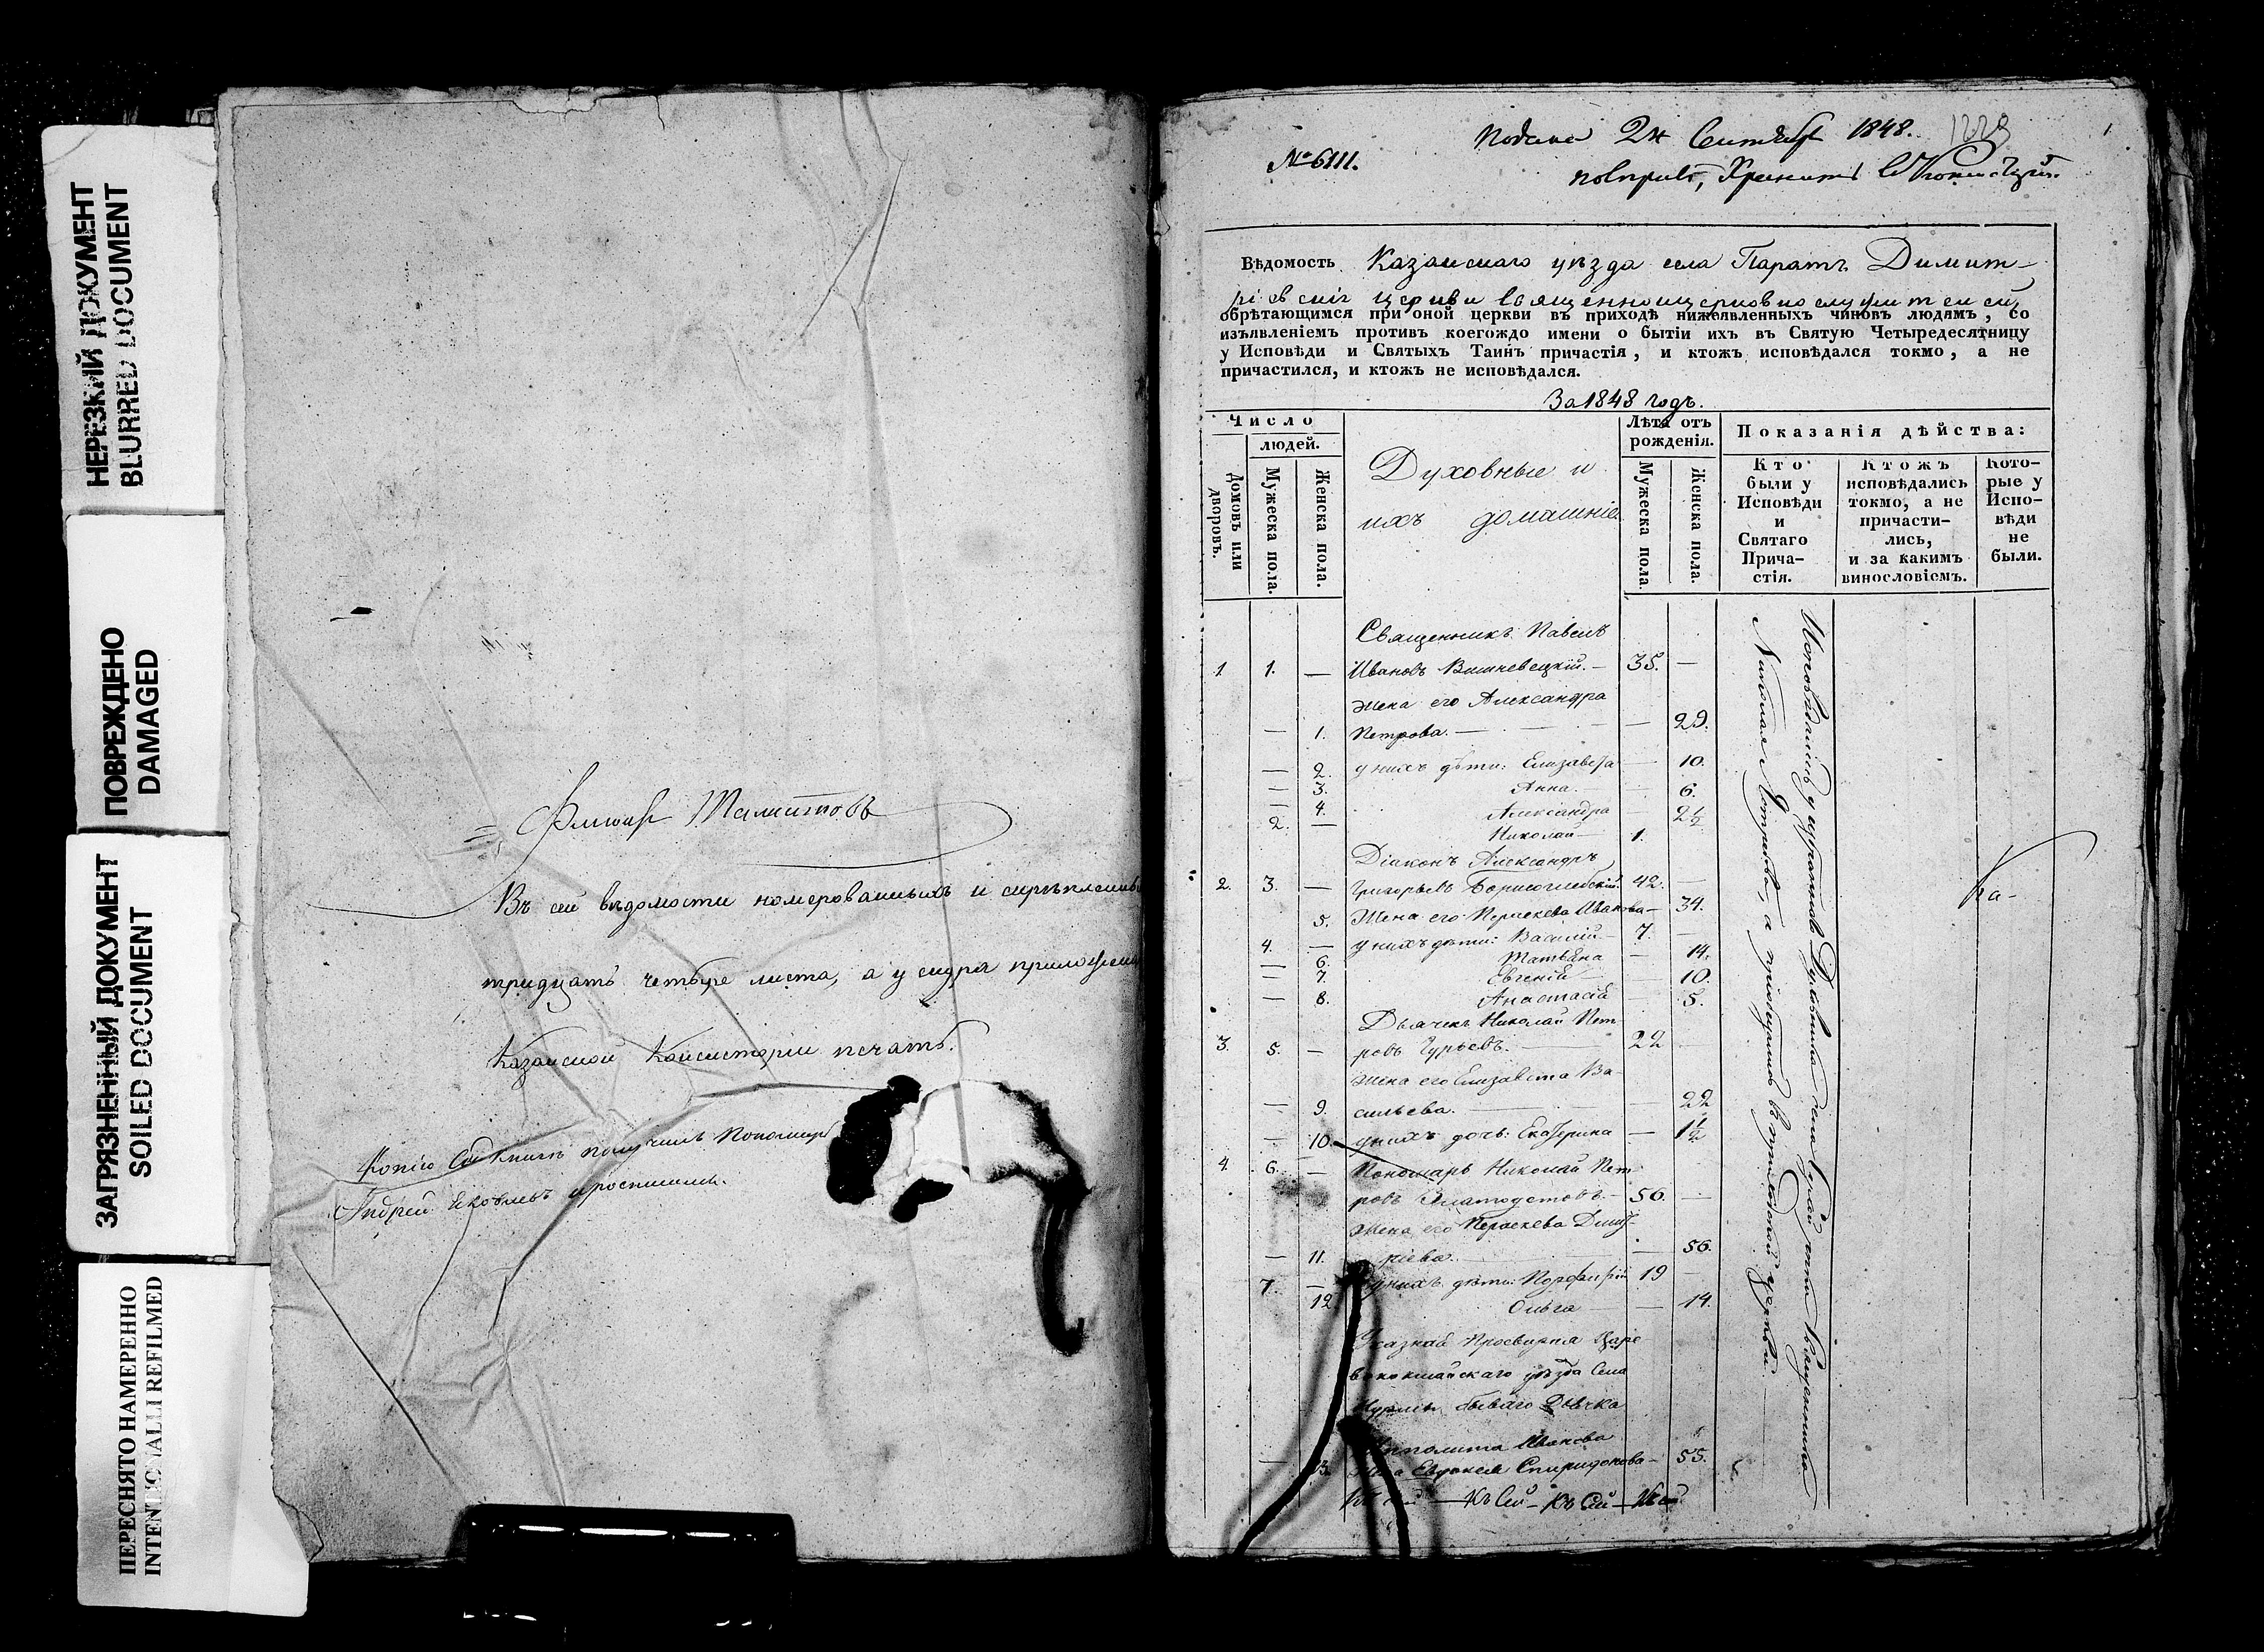 НЕРЕЗКИЙ ДОКУМЕНТ
BLURRED DOCUMENT
ПОВРЕЖДЕНО
DAMAGED
ЗАГРЯЗНЕННЫЙ ДОКУМЕНТ
SOILED DOCUMENT
ПЕРЕСНЯТО НАМЕРЕННО
INTENTIONALLI REFILMED
Въ сей вѣдомости номерованныхъ и скрѣпленных
тридцать четыре листа, а у снура приложен
Казанской Консисторіи печать.
Копію сей книги получилъ Пономарь
Андрей Яковлевъ
№ 6111.
Подана 24 Сентября 1848.
1
Вѣдомость Казанскаго уѣзда села Паратъ Димит-
ріевскія церкви Священноцерковнослужителей,
обрѣтающимся при оной церкви въ приходѣ нижеявленныхъ чиновъ людямъ, со
изъявленіемъ противъ коегождо имени о бытіи ихъ въ Святую Четыредесятницу
у Исповѣди и Святыхъ Таинъ причастія, и ктожъ исповѣдался токмо, а не
причастился, и ктожъ не исповѣдался.
За 1848 годъ.
Число
людей.
Домовъ или дворовъ.
Мужеска пола.
Женска пола.
Духовные и
ихъ домашніе
Лѣта отъ рожденія.
Мужеска пола
Женска пола.
Показанія дѣйства:
Кто были у Исповѣди и Святаго Причастія.
Ктожъ исповѣдались токмо, а не причастились, и за какимъ винословіемъ.
Которые у Исповѣди не были.
Священникъ Павелъ
1. 1. — Ивановъ Вишневецкій. — 35. —
жена его Александра
— 1. Петрова. — — 29.
— 2. у нихъ дѣти: Елизавета — 10.
— 3. Анна. — 6.
— 4. Александра — 2½
2. — Николай — 1.
Діаконъ Александръ
2. 3. — Григорьевъ Борисоглебскій. 42. —
5. Жена его Параскева Иванова — 34.
4. — у нихъ дѣти: Василій — 7. —
— 6. Татьяна — 14.
— 7. Евгенія 10.
— 8. Анастасія 5.
Дьячекъ Николай Пет
3. 5. — ровъ Гурьевъ. — 22
жена его Елизавета Ва-
— 9. сильева. — 22
— 10. у нихъ дочь: Екатерина — 1½
4. 6. — Пономарь Николай Пет
ровъ Златоустовъ. — 56. —
жена его Параскева Дмит-
— 11. ріева. — 56.
7. — у нихъ дѣти: Порфирій 19 —
12 Ольга — 14.
Указная Просвирня Царе
вококшайскаго уѣзда Села
бывшаго Дьячка
Ипполита Иванова
— 13. жена Евдокея Спиридонова — 55.
Исповѣдались у Духовника села Священника
Николая а пріобщались въ приходской церкви